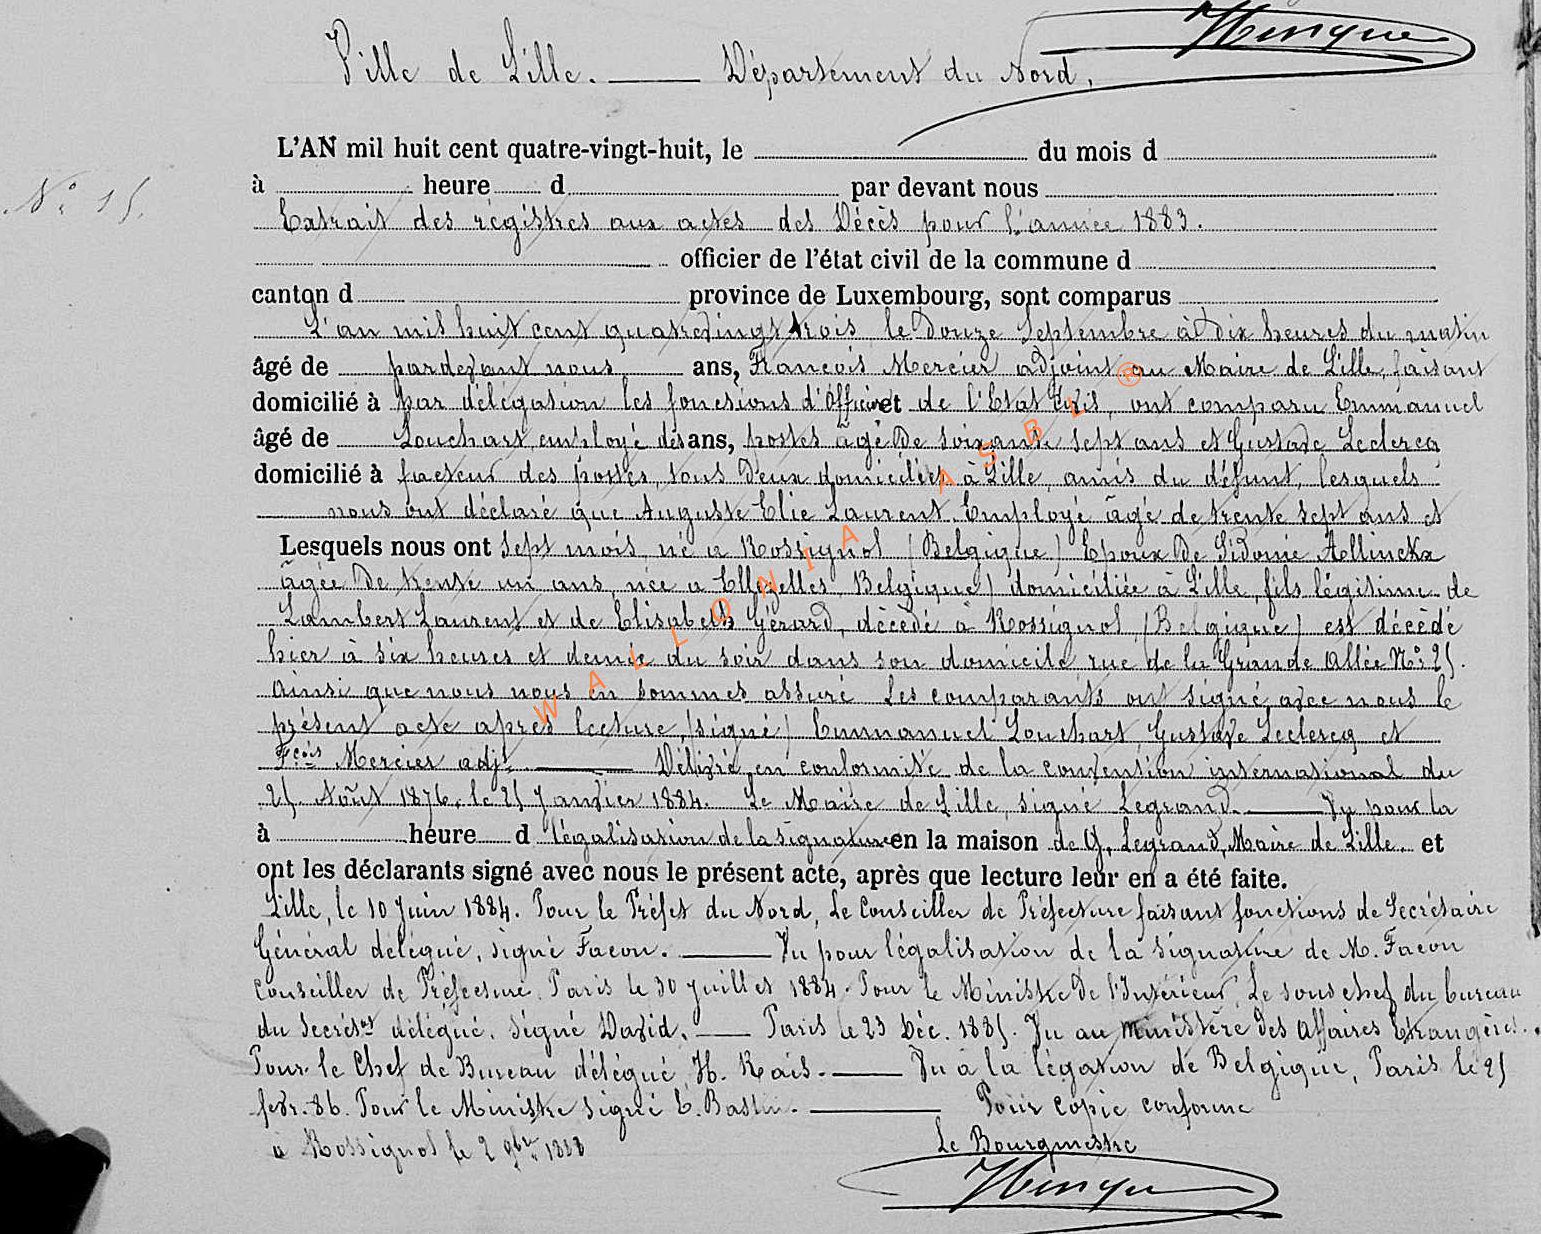 Hinque
Ville de Lille. — Département du Nord.
L'AN mil huit cent quatre-vingt-huit, le du mois d
à heure d par devant nous
N° 15.
Extrait des régistres aux actes des Décès pour l'année 1883.
officier de l'état civil de la commune d
canton d province de Luxembourg, sont comparus
L'an mil huit cent quatrevingt trois, le Douze Septembre à Dix heures du matin
âgé de pardevant nous ans, Francois Mercier adjoint au Maire de Lille, faisant
domicilié à par délégation les fonctions d'Officier et de l'Etat Civil, ont comparu Emmanuel
âgé de Louchart, employé des ans, postes âgé de soixante sept ans et Gustave Leclercq
domicilié à facteur des postes, tous Deux domiciliés à Lille, amis du défunt, lesquels
nous ont déclaré que Auguste Elie Laurent. Employé âgé de trente sept ans et
Lesquels nous ont sept mois, né à Rossignol (Belgique) Epoux de Sidonie
âgée de trente un ans, née à Ellezelles, Belgique) domiciliée à Lille, fils légitime de
Lambert Laurent et de Elisabeth Gérard, décédé à Rossignol, (Belgique) est décédé
hier à six heures et demie du soir dans son domicile rue de la Grande Allée N° 25.
Ainsi que nous nous en sommes assuré Les comparants ont signé avec nous le
présent acte après lecture, (signé) Emmanuel Louchart, Gustave Leclercq et
Fçois Mercier adjt. — Délivré en conformité de la convention international du
25. Août 1876, le 25 Janvier 1884. Le Maire de Lille, signé Legrand. — Vu pour la
à heure d légalisation de la signature en la maison de G. Legrand, Maire de Lille. et
ont les déclarants signé avec nous le présent acte, après que lecture leur en a été faite.
Lille, le 10 Juin 1884. Pour le Préfet du Nord, Le Conseiller de Préfecture faisant fonctions de Secrétaire
Général délégué, signé Facon. — Vu pour légalisation de la signature de M. Facon
Conseiller de Préfecture. Paris le 30 Juillet 1884. Pour le Ministre de l'Intérieur, Le sous chef du bureau
du Secrét délégué. signé David. — Paris le 23 Déc. 1885. Vu au Ministère des Affaires Etrangères.
Pour le Chef de Bureau délégué, H. Rais. — Vu à la légation de Belgique, Paris le 25
fevr. 86. Pour le Ministre signé E. Bastin. — Pour copie conforme
à Rossignol le 2 9bre 1888
Le Bourgmestre
Hinque
WALLONIA ASBL ®